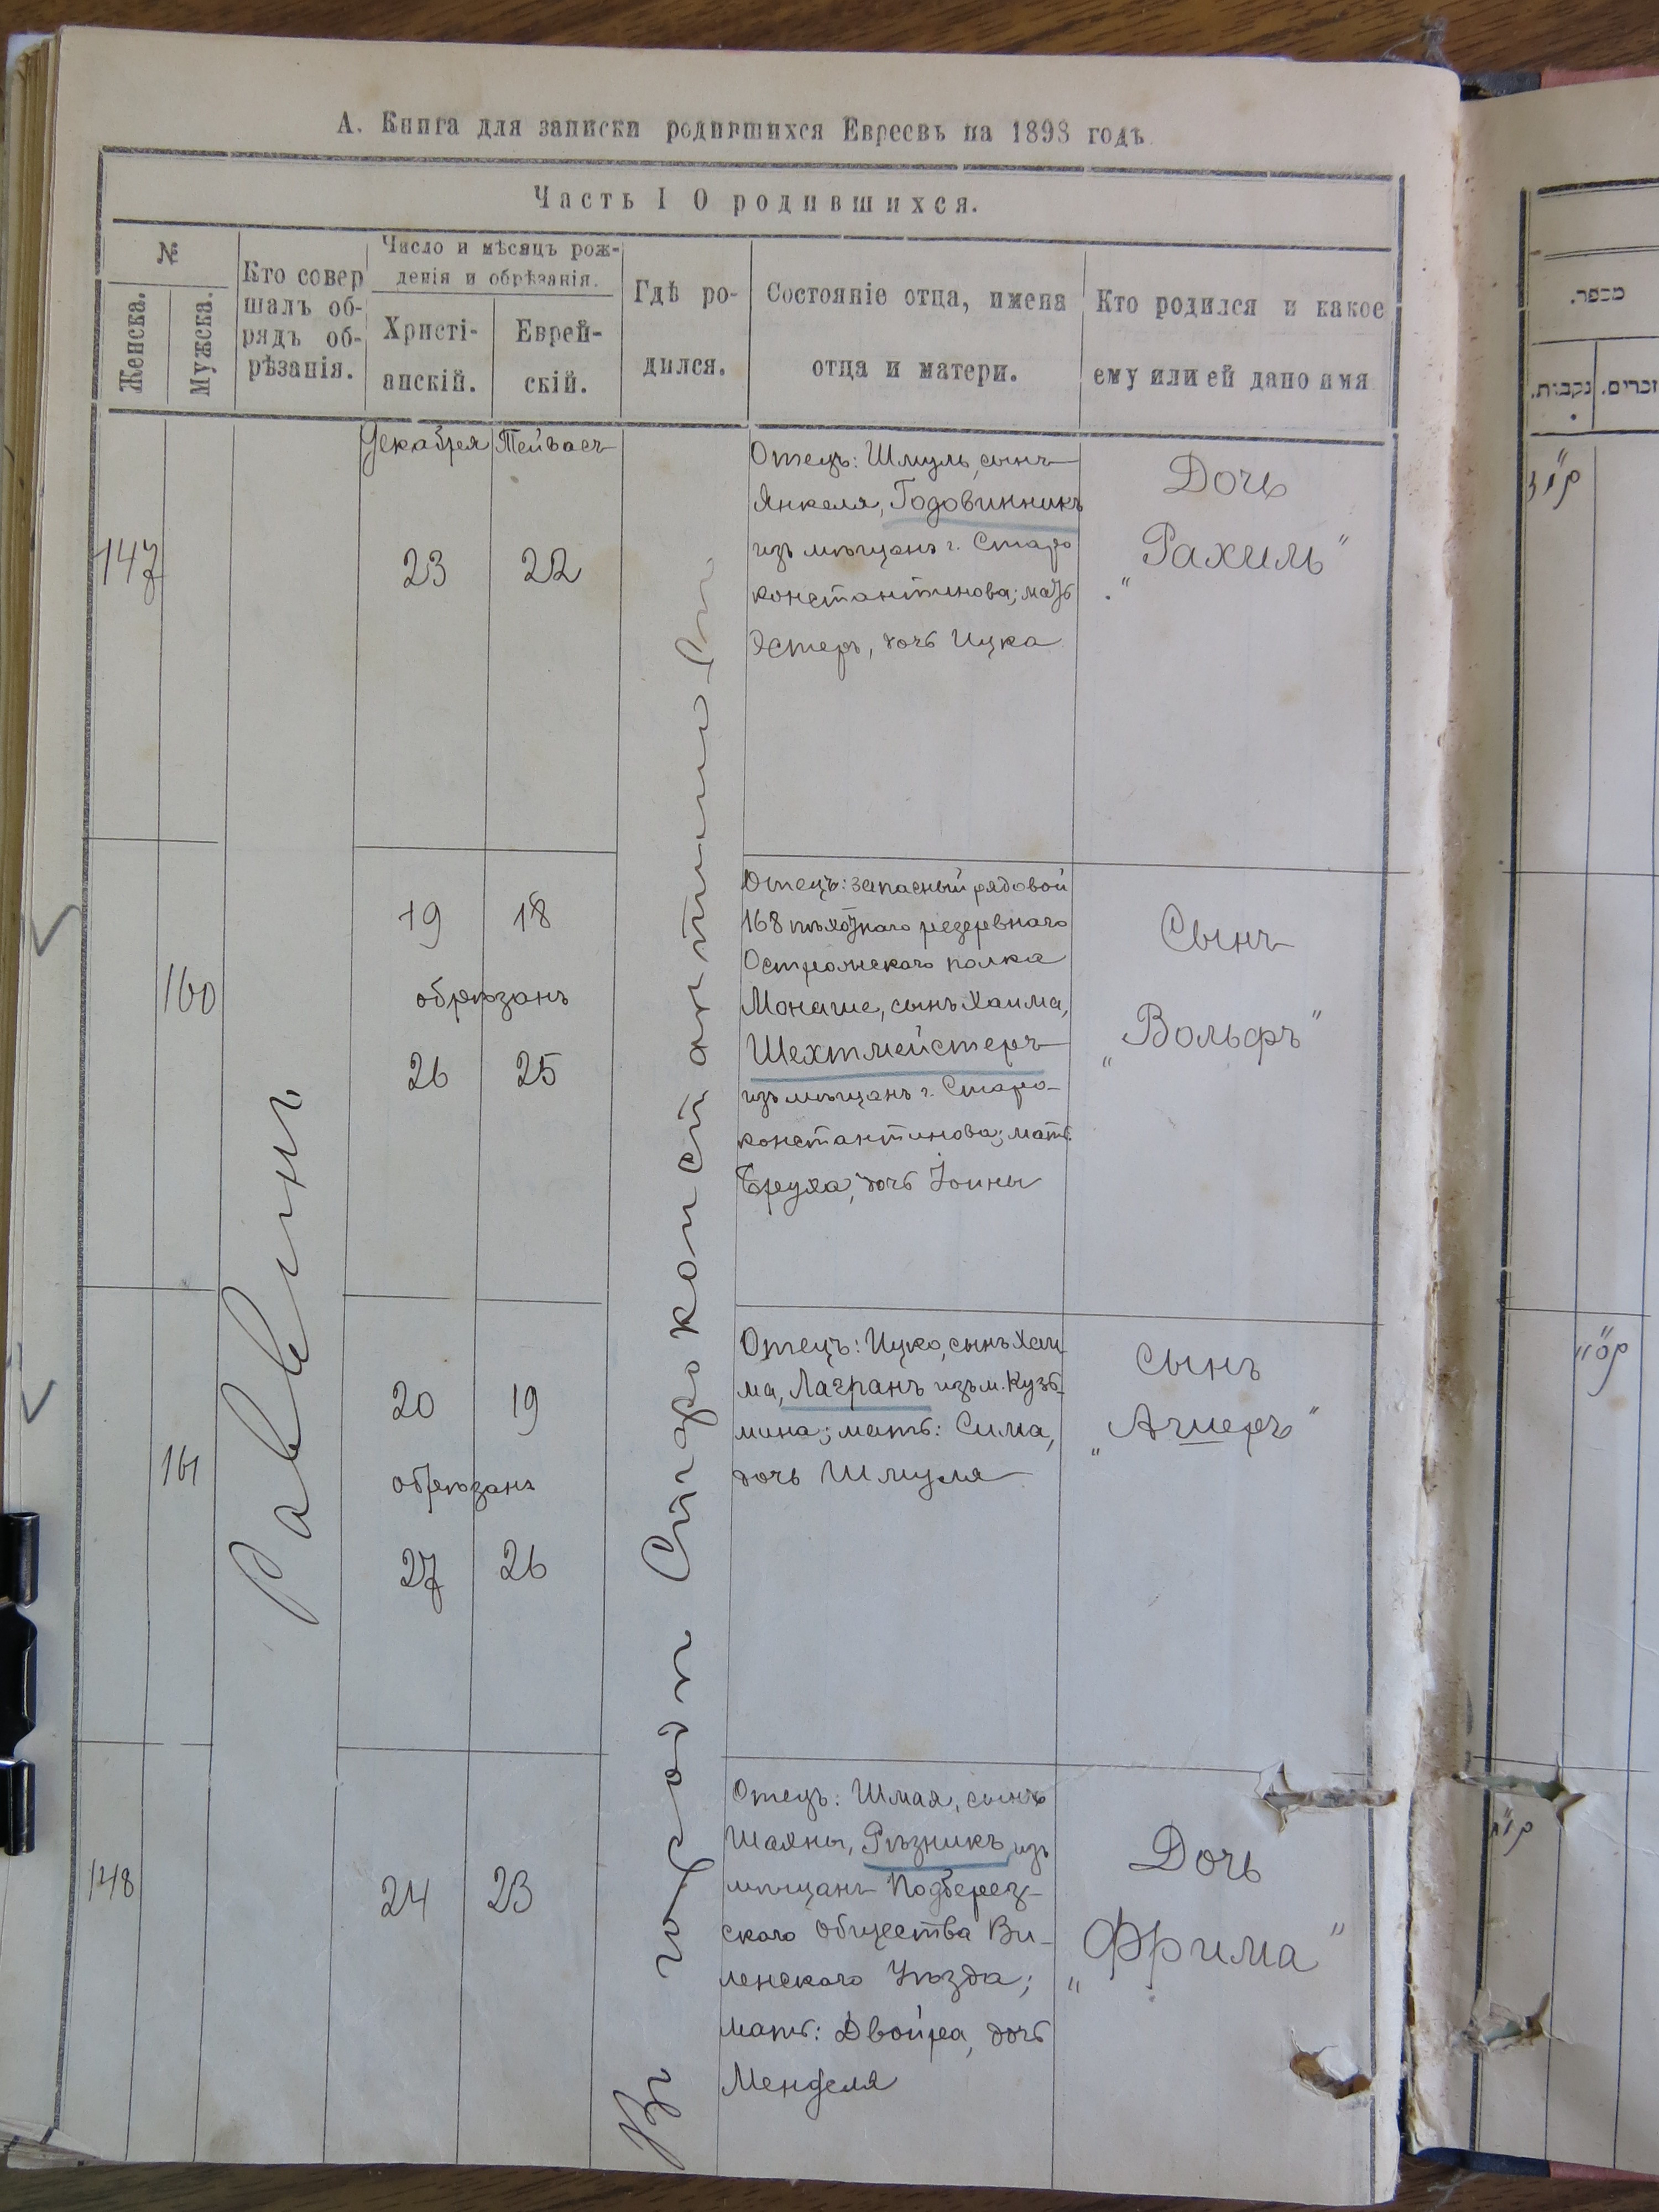 А. Книга для записки родившихся Евреевъ на 1898 годъ
Часть I О родившихся.
№
Женска.
Мужска.
Кто совер
шалъ об-
рядъ об-
рѣзанія.
Число и мѣсяцъ рож-
денія и обрѣзанія.
Христі-
анскій.
Еврей-
скій.
Гдѣ ро-
дился.
Состояніе отца, имена
отца и матери.
Кто родился и какое
ему или ей дано имя
מספר.
נקבות.
זכרים.
Равинъ
Въ городѣ Староконстантиновѣ
Декабря
Тейвасъ
147
23
22
Отецъ: Шмуль, сынъ
Янкеля, Годовинникъ
изъ мѣщанъ г. Старо
константинова; мать
Эстеръ, дочь Ицка
Дочь
„Рахиль"
קמ"ז
160
19
18
обрѣзанъ
26
25
Отецъ: запасный рядовой
168 пѣхотнаго резервнаго
Острожскаго полка
Монаше, сынъ Хаима,
Шехтмейстеръ
изъ мѣщанъ г. Старо-
константинова; мать
Бруха, дочь Іоины
Сынъ
„Вольфъ"
161
20
19
обрѣзанъ
27
26
Отецъ: Ицко, сынъ Хаи-
ма, Лагранъ изъ м. Кузь-
мина; мать: Сима,
дочь Шмуля
Сынъ
„Ашеръ"
148
24
23
Отецъ: Шмая, сынъ
Шаяны, Рѣзникъ, изъ
мѣщанъ Подберез-
скаго общества Ви-
ленскаго Уѣзда;
мать: Двойра, дочь
Менделя
Дочь
„Фрима"